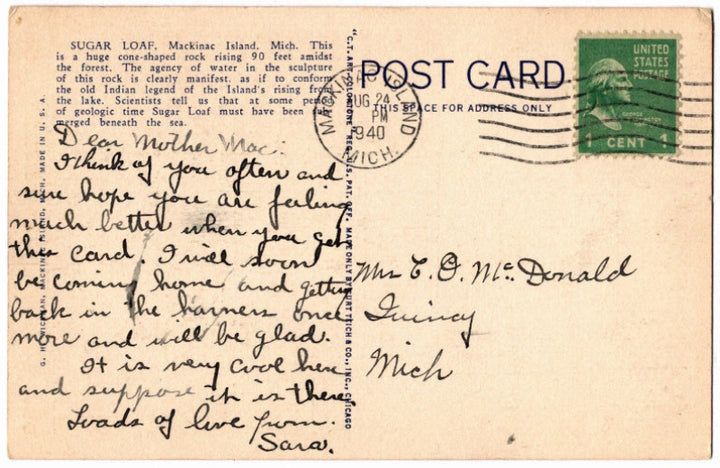 SUGAR LOAF, Mackinac Island, Mich. This
is a huge cone-shaped rock rising 90 feet amidst
the forest. The agency of water in the sculpture
of this rock is clearly manifest, as if to conform
the old Indian legend of the Island's rising from
the lake. Scientists tell us that at some
of geologic time Sugar Loaf must have been
merged beneath the sea.
Dear Mother Mac:
I think of you often and
sure hope you are feeling
much better when you get
this card. I will soon
be coming home and getting
back in the harness once
more and will be glad.
It is very cool here
and suppose it is there.
Loads of love from
Sara.
MICH. MADE IN U. S. A.
"C.T. ART-COLORTONE" REG. U.S. PAT. OFF. MADE ONLY BY CURT TEICH & CO., INC., CHICAGO
POST CARD
THIS SPACE FOR ADDRESS ONLY
MACKINAC ISLAND
AUG 24
PM
1940
MICH.
UNITED
STATES
POSTAGE
GEORGE WASHINGTON
1 CENT 1
Mrs C. O. McDonald
Quincy
Mich